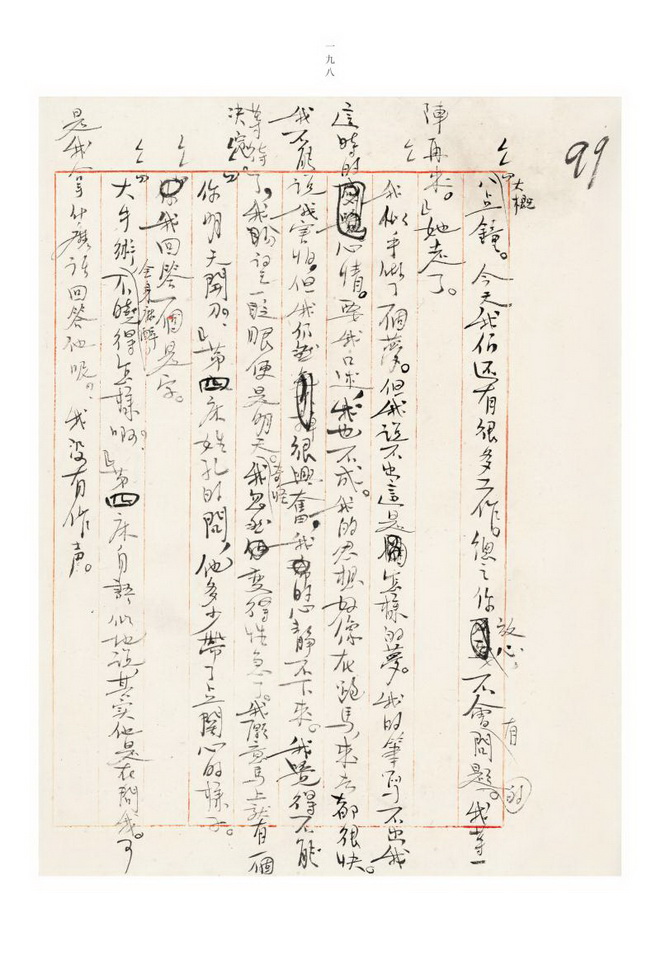 一九八
99
「大概八点鐘。今天我们还有很多工作。總之你放心。不會有問題的。我等一
陣再來。」她走了。
我似乎做了一個夢。但我说不出這是怎樣的夢。我的筆写不出我
這時的心情。要我口述，我也不成。我的思想好像在跑馬，來去都很快。
我不能説我害怕，但我很興奮，我的心静不下來。我覺得不能
等待了，我盼望一眨眼便是明天。我忽然變得性急了。我願意馬上就有一個
决定。
「你明天開刀？」第四床姓孔的問，他多少帶了点關心的樣子。
我回答一個是字。
「大手術，全身麻醉，不曉得怎樣啊？」第四床自語似地说，其实他是在問我。可
是我拿什麽話回答他呢？我没有作声。